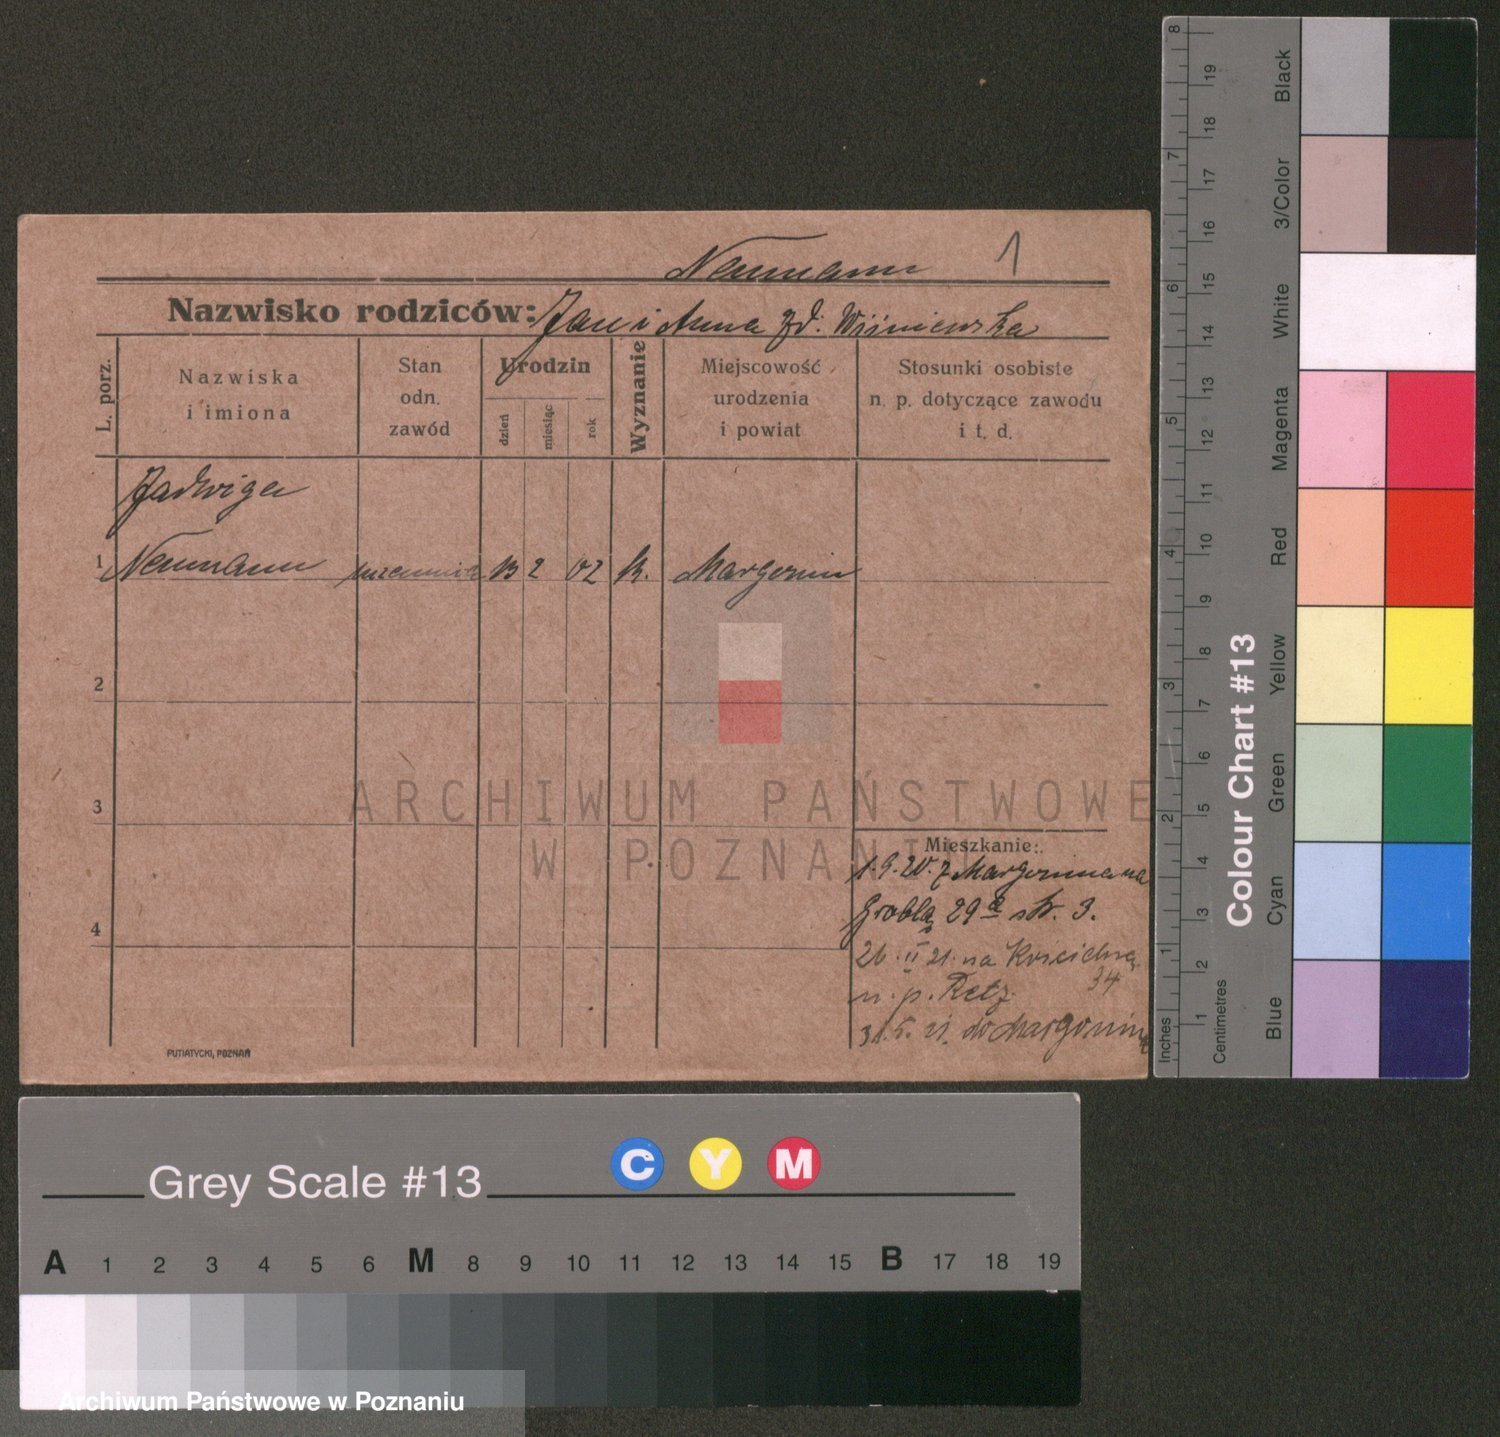 Neumann 1
Nazwisko rodziców: Jan i Anna zd. Wiśniewska
L. porz.
Nazwiska
i imiona
Stan
odn.
zawód
Urodzin
dzień
miesiąc
rok
Wyznanie
Miejscowość
urodzenia
i powiat
Stosunki osobiste
n. p. dotyczące zawodu
i t. d.
Jadwiga
1 Neumann uczennica 13 2 02 k. Margonin
2
3
4
ARCHIWUM PAŃSTWOWE
W POZNANIU
Mieszkanie:
1.9.20. z Margonina na
Groblą 29a str. 3.
26.II 21. na
34
n. p. Retz
31.5. 21. do Margonina
PUTIATYCKI, POZNAŃ
Grey Scale #13
C Y M
A 1 2 3 4 5 6 M 8 9 10 11 12 13 14 15 B 17 18 19
Archiwum Państwowe w Poznaniu
Colour Chart #13
Inches
1 2 3 4 5 6 7 8
Centimetres
1 2 3 4 5 6 7 8 9 10 11 12 13 14 15 16 17 18 19
Blue
Cyan
Green
Yellow
Red
Magenta
White
3/Color
Black